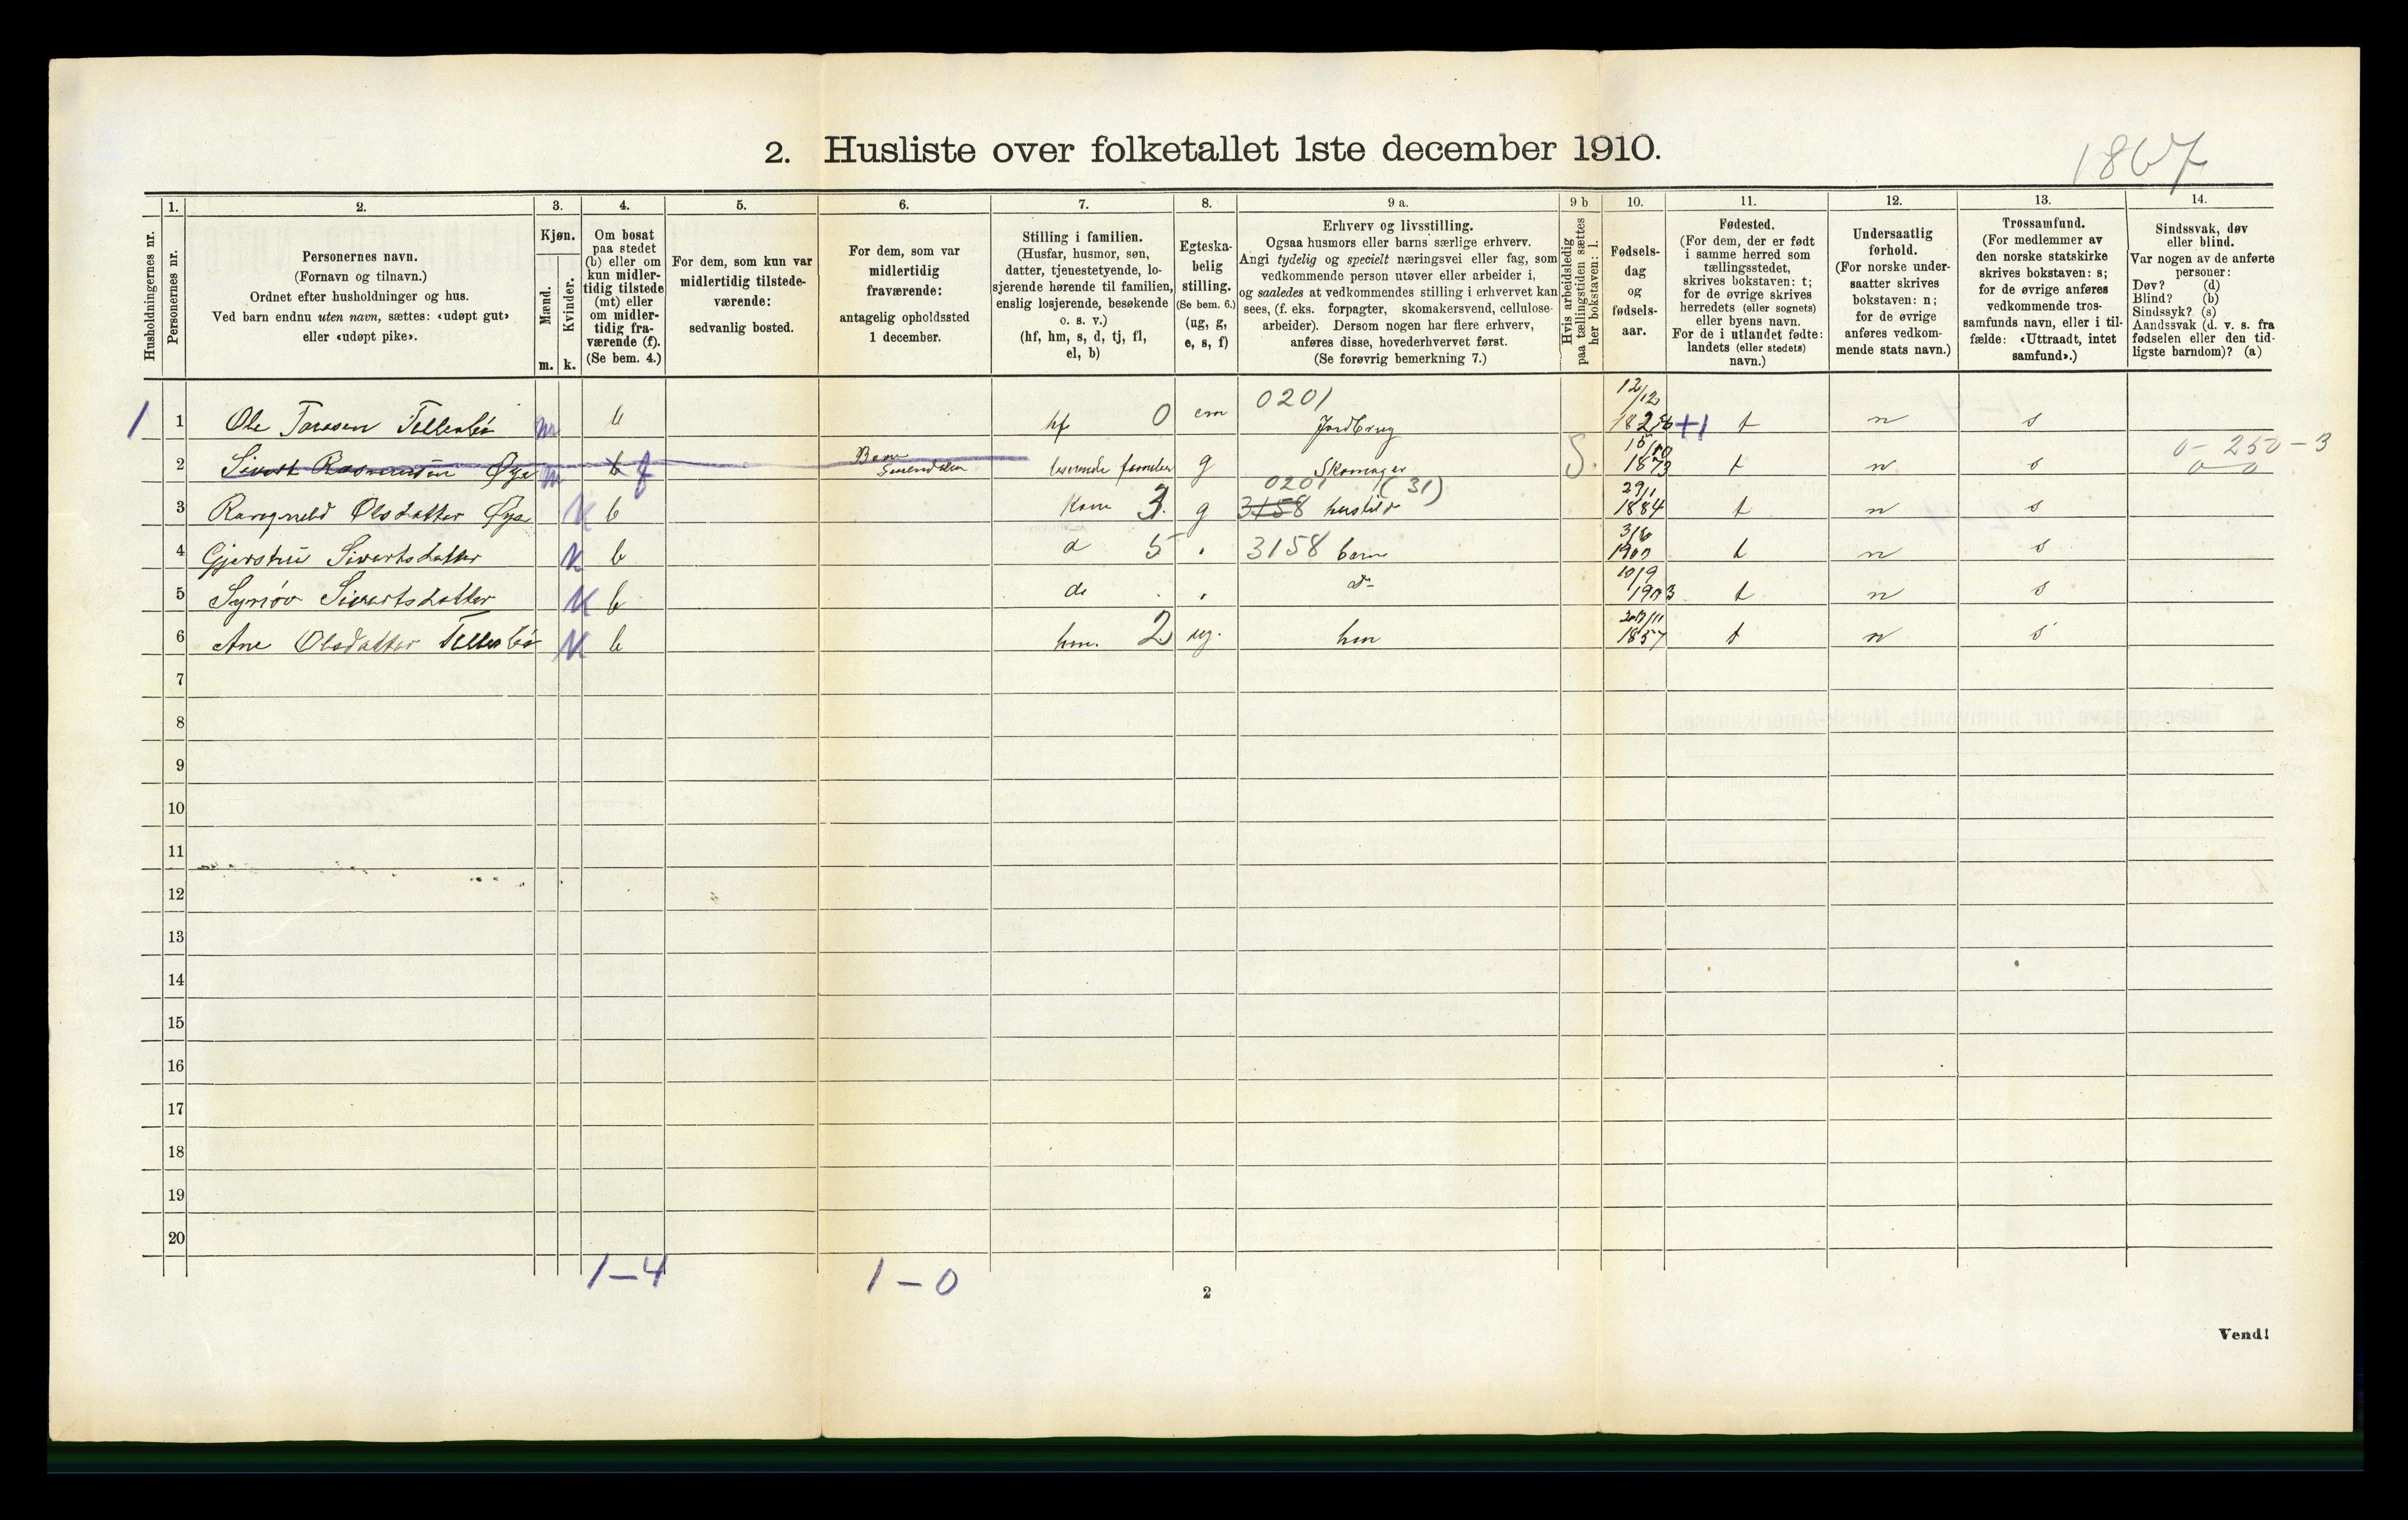 2. Husliste over folketallet 1ste december 1910.
1867
Husholdningernes nr.
1.
Personernes nr.
2.
Personernes navn.
(Fornavn og tilnavn.)
Ordnet efter husholdninger og hus.
Ved barn endnu uten navn, sættes: «udøpt gut»
eller «udøpt pike».
3.
Kjøn.
Mænd.
Kvinder.
m. k.
4.
Om bosat
paa stedet
(b) eller om
kun midler-
tidig tilstede
(mt) eller
om midler-
tidig fra-
værende (f).
(Se bem. 4.)
5.
For dem, som kun var
midlertidig tilstede-
værende:
sedvanlig bosted.
6.
For dem, som var
midlertidig
fraværende:
antagelig opholdssted
1 december.
7.
Stilling i familien.
(Husfar, husmor, søn,
datter, tjenestetyende, lo-
sjerende hørende til familien,
enslig losjerende, besøkende
o. s. v.)
(hf, hm, s, d, tj, fl,
el, b)
8.
Egteska-
belig
stilling.
(Se bem. 6.)
(ug, g,
e, s, f)
9 a.
Erhverv og livsstilling.
Ogsaa husmors eller barns særlige erhverv.
Angi tydelig og specielt næringsvei eller fag, som
vedkommende person utøver eller arbeider i,
og saaledes at vedkommendes stilling i erhvervet kan
sees, (f. eks. forpagter, skomakersvend, cellulose-
arbeider). Dersom nogen har flere erhverv,
anføres disse, hovederhvervet først.
(Se forøvrig bemerkning 7.)
9 b
Hvis arbeidsledig
paa tællingstiden sættes
her bokstaven: l.
10.
Fødsels-
dag
og
fødsels-
aar.
11.
Fødested.
(For dem, der er født
i samme herred som
tællingsstedet,
skrives bokstaven: t;
for de øvrige skrives
herredets (eller sognets)
eller byens navn.
For de i utlandet fødte:
landets (eller stedets)
navn.)
12.
Undersaatlig
forhold.
(For norske under-
saatter skrives
bokstaven: n;
for de øvrige
anføres vedkom-
mende stats navn.)
13.
Trossamfund.
(For medlemmer av
den norske statskirke
skrives bokstaven: s;
for de øvrige anføres
vedkommende tros-
samfunds navn, eller i til-
fælde: «Uttraadt, intet
samfund».)
14.
Sindssvak, døv
eller blind.
Var nogen av de anførte
personer:
Døv? (d)
Blind? (b)
Sindssyk? (s)
Aandssvak (d. v. s. fra
fødselen eller den tid-
ligste barndom)? (a)
1 1 Ole m b hf 0 em 0201 Jordbrug 12/12 +1 t n s
2 Sivert Rasmussen Øye m b f g Skomager S. 1873 t n s 0-250-3 0-0
3 Olsdatter Øye K b Kone 3. g 0201 (31) 3158 29/1 1884 t n s
4 Sivertsdatter K b d 5 3158 barn 3/6 1900 t n s
5 Sivertsdatter K b do do 10/9 1903 t n s
6 Ane Olsdatter K b hm. 2 ug. hm 1857 t n s
7
8
9
10
11
12
13
14
15
16
17
18
19
20
1-4 1-0
2
Vend!